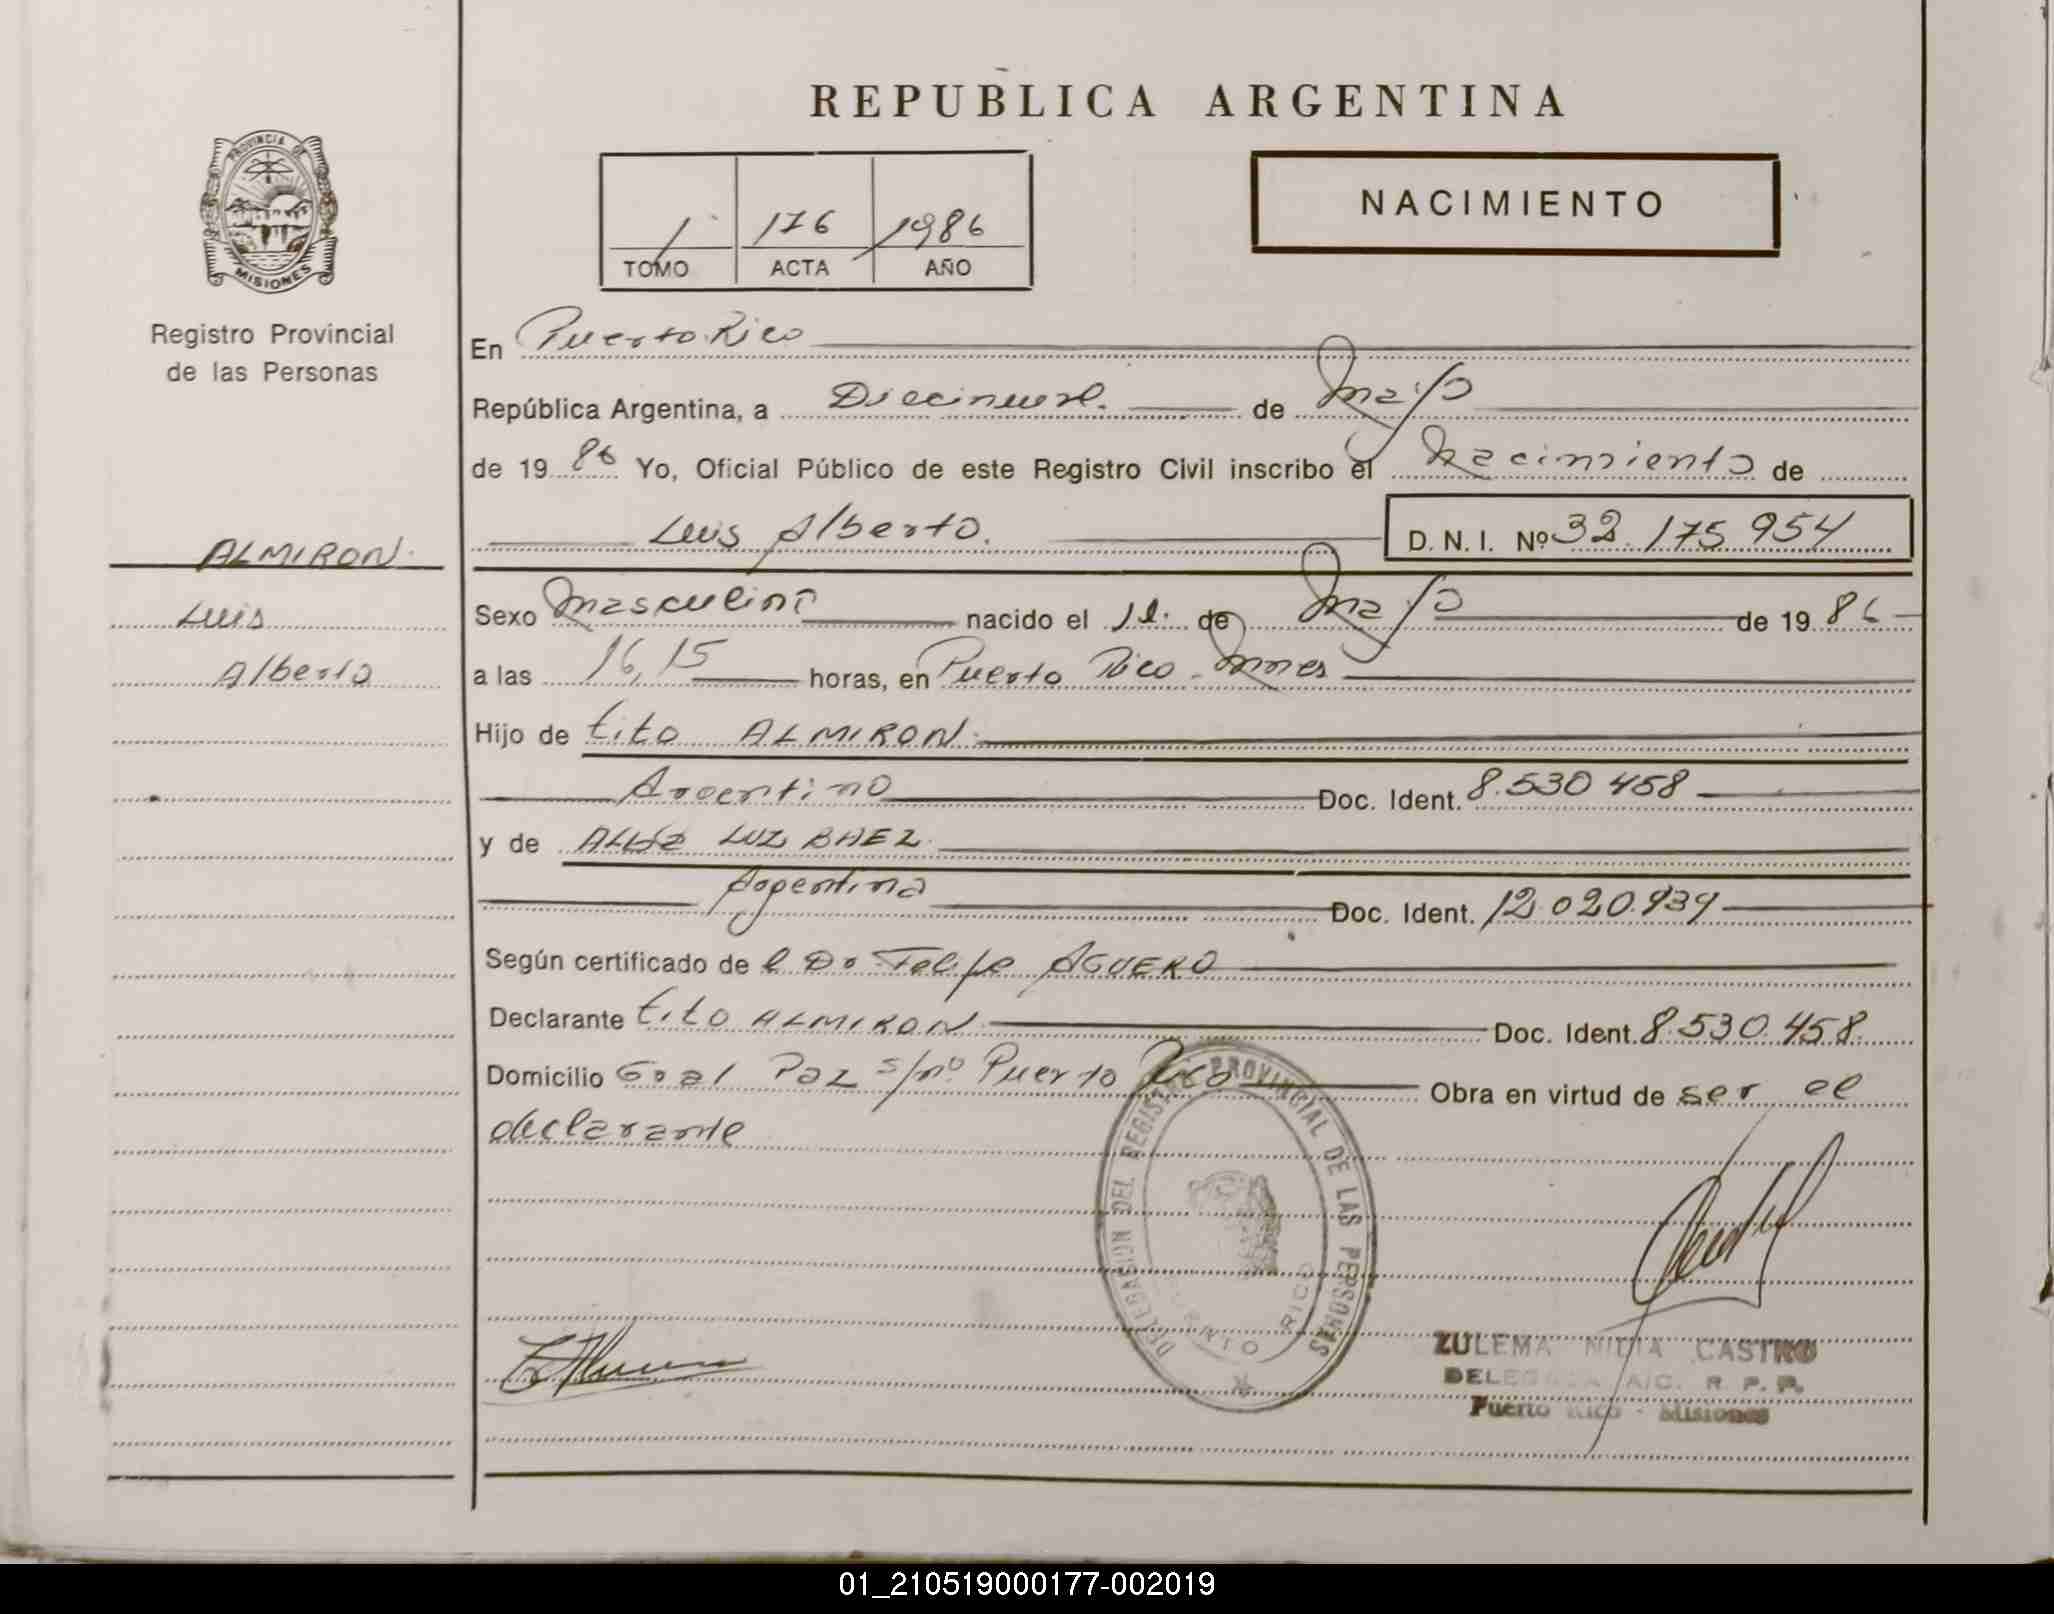 REPUBLICA ARGENTINA
PROVINCIA DE
MISIONES
Registro Provincial
de las Personas
1 176 1986
TOMO ACTA AÑO
NACIMIENTO
En Puerto Rico
República Argentina, a Diecinueve. de Mayo
de 1986 Yo, Oficial Público de este Registro Civil inscribo el Nacimiento de
Luis Alberto. D. N. I. Nº 32.175954
ALMIRON.
Luis
Alberto
Sexo Masculino nacido el de Mayo de 1986
a las 16,15 horas, en Puerto Rico - Mnes
Hijo de Tito ALMIRON.
Argentino Doc. Ident. 8.530458
y de LUZ BAEZ.
Argentina Doc. Ident. 12.020.939
Según certificado de l Dr Felipe AGUERO
Declarante Tito ALMIRON Doc. Ident. 8.530.458.
Domicilio Gral Paz s/nº Puerto Rico Obra en virtud de ser el
declarante
DELEGACION DEL REGISTRO PROVINCIAL DE LAS PERSONAS
PUERTO RICO
ZULEMA NIDIA CASTRO
DELEGADA A/C. R. P. P.
Puerto Rico - Misiones
01_210519000177-002019